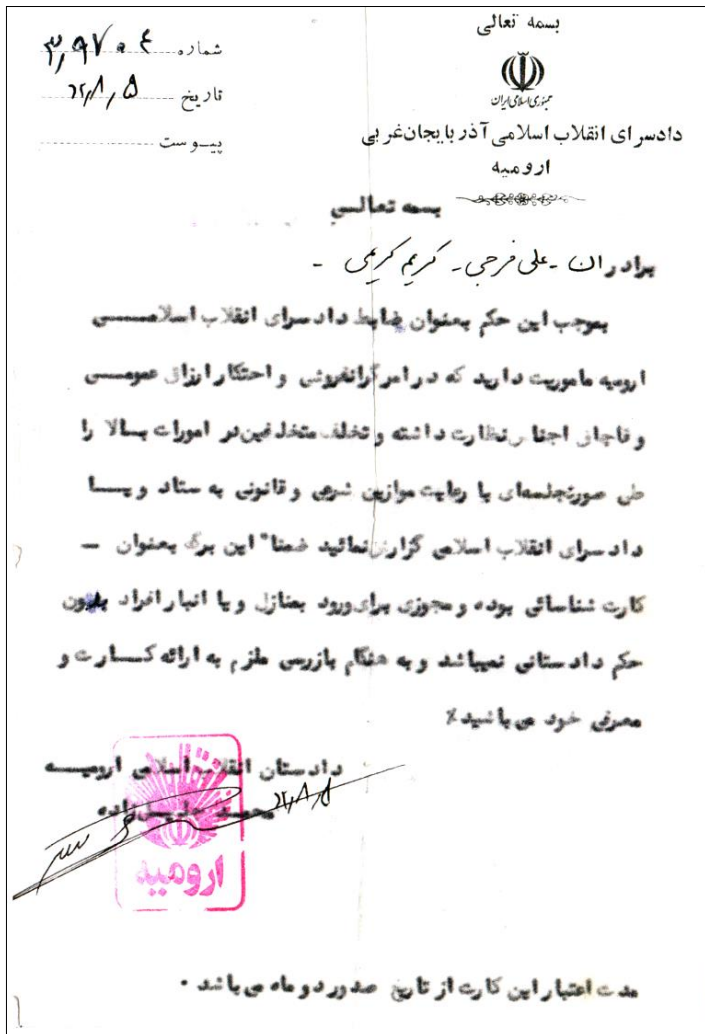 بسمه تعالی
جمهوری اسلامی ایران
دادسرای انقلاب اسلامی آذربایجان غربی
ارومیه
شماره
تاریخ
پیوست
بسمه تعالی
برادران - علی فرجی - کریم کریمی -
بموجب این حکم بعنوان ضابط دادسرای انقلاب اسلامی
ارومیه ماموریت دارید که در امر گرانفروشی و احتکار ارزاق عمومی
و قاچاق اجناس نظارت داشته و تخلف متخلفین در امورات بالا را
طی صورتجلسهای با رعایت موازین شرعی و قانونی به ستاد و یا
دادسرای انقلاب اسلامی گزارش نمائید ضمنا" این برگ بعنوان -
کارت شناسائی بوده و مجوزی برای ورود بمنازل و یا انبار افراد بدون
حکم دادستانی نمیباشد و به هنگام بازرسی ملزم به ارائه کارت و
معرفی خود می‌باشید٪
دادستان انقلاب اسلامی ارومیه
محمد
ارومیه
مدت اعتبار این کارت از تاریخ صدور دو ماه می‌باشد .